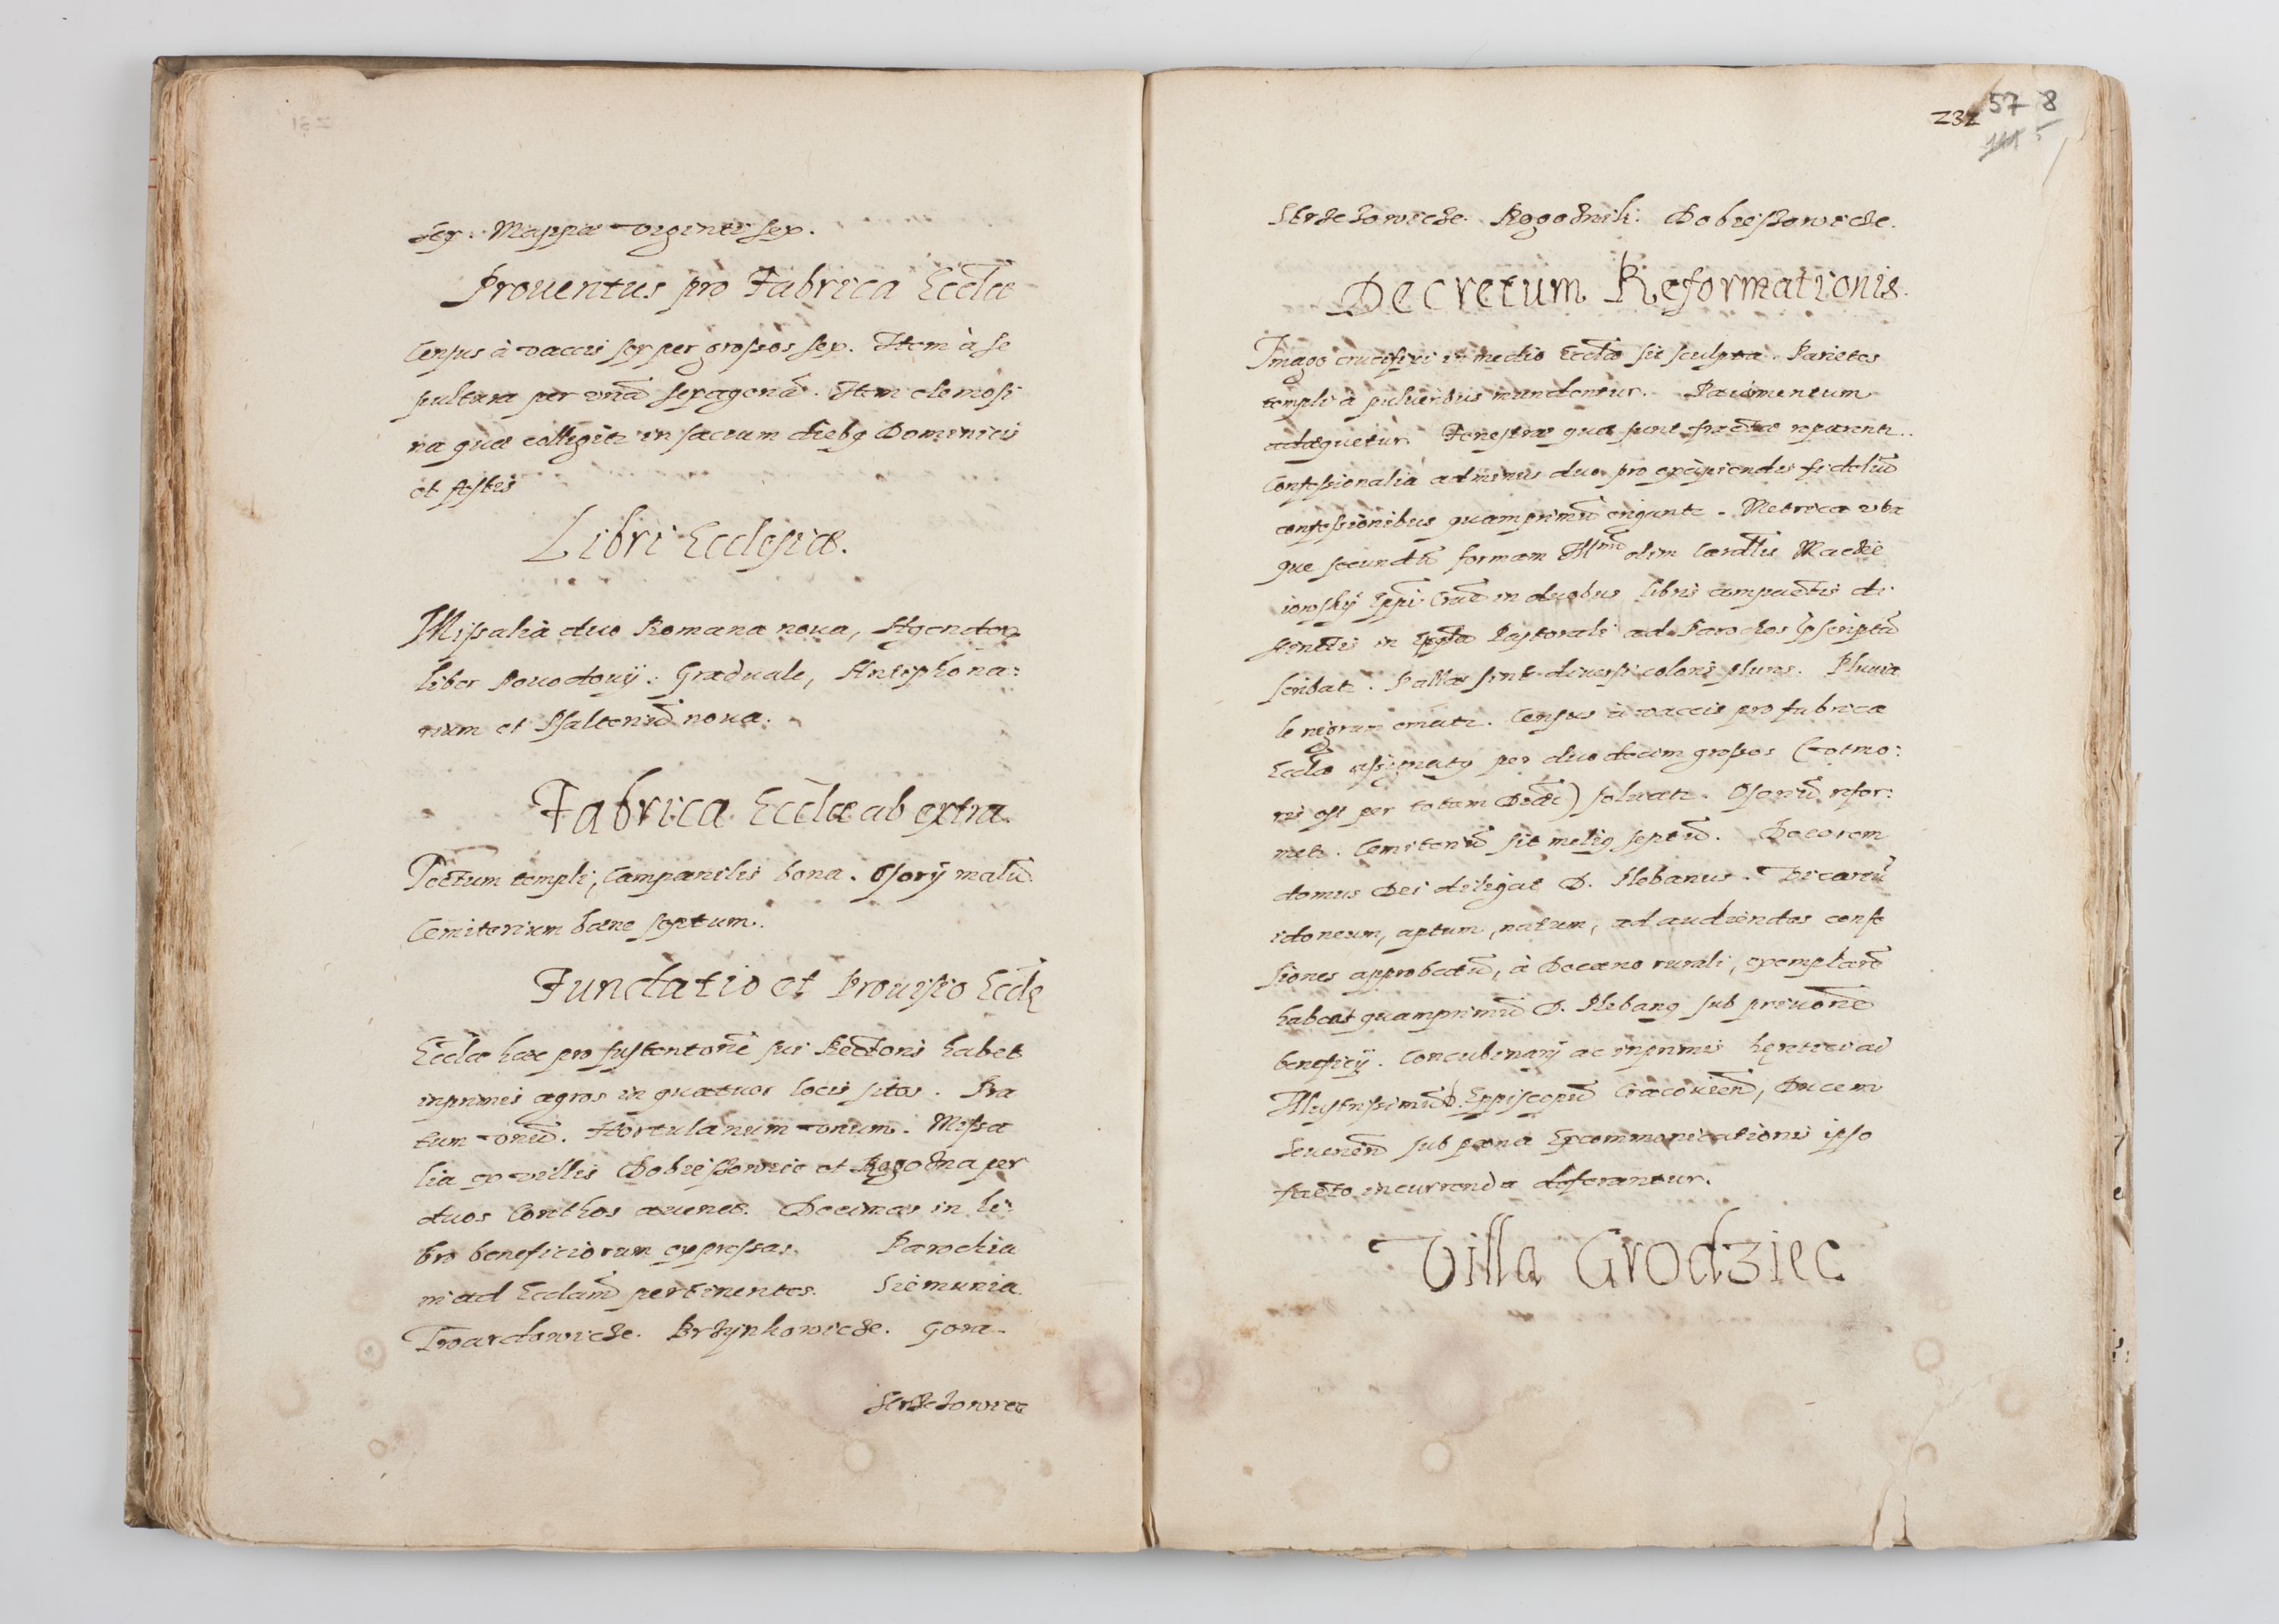 sex. Mappæ viginti sex.
Prouentus pro Fabrica Eccłæ
Census à vaccis sex per grossos sex. Item à se
pultura per vnā sexagenā. Item elemosi
na quæ colligitr in saccum diebq Dominicis
et festis
Libri Ecclesiæ.
Missalia duo Romana noua, Agendar
liber Powodowÿ. Graduale, Antiphona:
rium et Psalteriū noua.
Fabrica Eccłæ ab extra
Tectum templi, Campanilis bona. Osorÿ malū.
Cemiterium bæne septum.
Fundatio et Prouisio Eccłę
Eccła hæc pro sustentōne sui Rectoris habet
inprimis agros in quatuor locis sitos. Pra
tum vnū. Hortulanum vnum. Missa
lia ex villis Dobieszowic et Rogozna per
duos Corthos auenæ. Decimas in li:
bro beneficiorum expressas. Parochia
ni ad Ecclam pertinentes. Siemunia.
Twardowicze. Brzynkowicze. Gora.
Strzezowice
232 57 8
Strzezowicze. Rogoznik. Dobieszowicze.
Decretum Reformationis.
Imago crucifixi in medio Eccłæ sit sculpta. Parietes
templi à pulueribus mundentur. Pauimentum
adæquetur. Fenestræ quæ sunt fractæ reparentr.
Confessionalia ad minus duo pro excipiendis fideliū
confessionibus quamprimū erigantr. Metrica vtra
que secundū formam Illmi olim Cardlis Macie
iowskÿ Eppi Crac in duobus libris compactis di
stinctis in Eppla Pastorali ad Parochos pscriptā
scribatr. Pallæ sint diuersi coloris plures. Pluuia
le nigrum ematr. Census à vaccis pro fabrica
Eccłæ assignatq per duodecim grossos (vt mo:
ris est per totam Diæc) soluatr. Osoriū refor:
metr. Cemiteriū sit meliq septū. Decorem
domus Dei diligat D. Plebanus. Vicariū
idoneum, aptum, natum, ad audiendas confe
ssiones approbatū, à Decano rurali, exemplarē
habeat quamprimū D. Plebanq sub priuōne
beneficÿ. Concubinarÿ ac inprimis hęretici ad
Illustrissimū D. Eppiscopū Cracouien, Ducem
Seuerien sub pæna Excommunicationis ipso
facto incurrenda deferantur.
Villa Grodziec